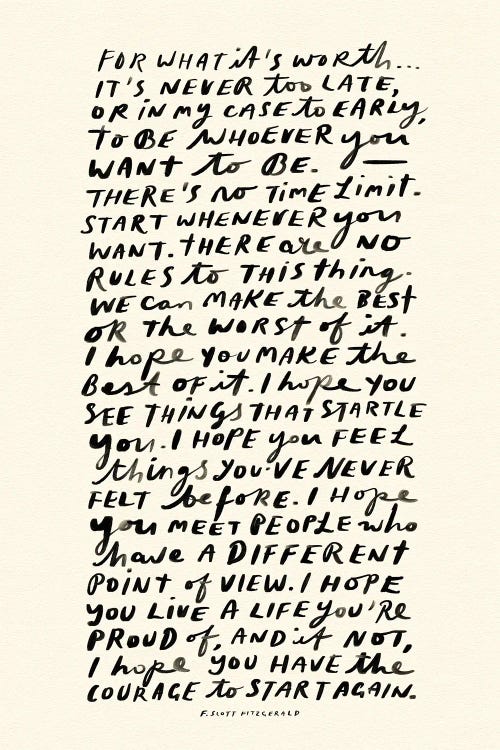 FOR WHAT iT'S WORth...
IT'S NEVER too LATE,
OR iN MY CASE to EARLY,
TO BE WHOEVER you
WANT to BE. —
THERE'S NO TiME Limit.
START WHENEVER you
WANT. tHERE are NO
RULES to THIS thing.
WE Can MAKE the BEST
OR The WORST of it.
I hope YOU MAKE the
Best OF it. I hope YOU
SEE THINGS THAT STARTLE
you. I HOPE you FEEL
things YOU'VE NEVER
FELT beFORE. I Hope
you MEET PEOPLE who
have A DIFFERENT
POiNT of VIEW. I HOPE
YOU LiVE A LIFE you'Re
PROUD of, AND if NOT,
I hope YOU HAVE the
COURAGE to START AGAIN.
F. SCOTT FITZGERALD